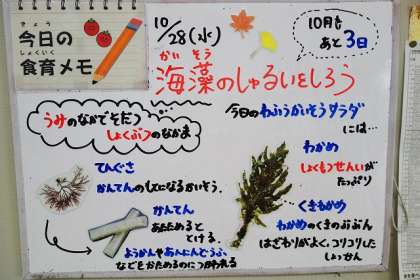 きょう
今日の
しょくいく
食育メモ
10/28(水)
10月も
あと3日
かいそう
海藻のしゅるいをしろう
うみのなかでそだつ
しょくぶつのなかま
今日のわふうかいそうサラダ
には…
てんぐさ
かんてんのもとになるかいそう。
かんてん
あたためると
とける。
ようかんやあんにんどうふ
などをかためるのにつかわれる
わかめ
しょくもつせんいが
たっぷり
くきわかめ
わかめのくきのぶぶん
はざわりがよく、コリコリした
しょっかん